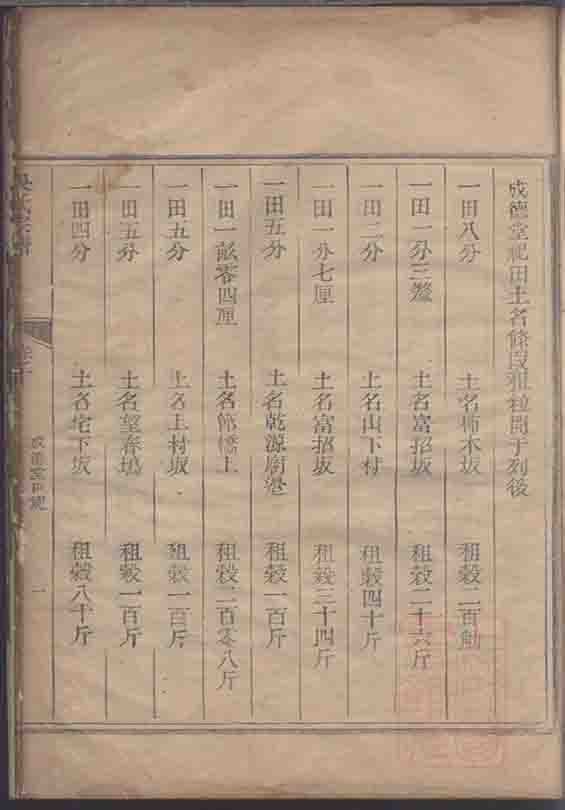 成德堂祀田土名條段租粒開于列後
一田八分 土名柿木坂 租穀二百觔
一田一分三釐 土名富招坂 租穀二十六斤
一田二分 土名山下村 租穀四十斤
一田一分七厘 土名富招坂 租穀三十四斤
一田五分 土名乾源廚港 租穀一百斤
一田一畝零四厘 土名節橋上 租穀二百零八斤
一田五分 土名上村坂 租穀一百斤
一田五分 土名望春塢 租穀一百斤
一田四分 土名宅下坂 租穀八十斤
成德堂田
一